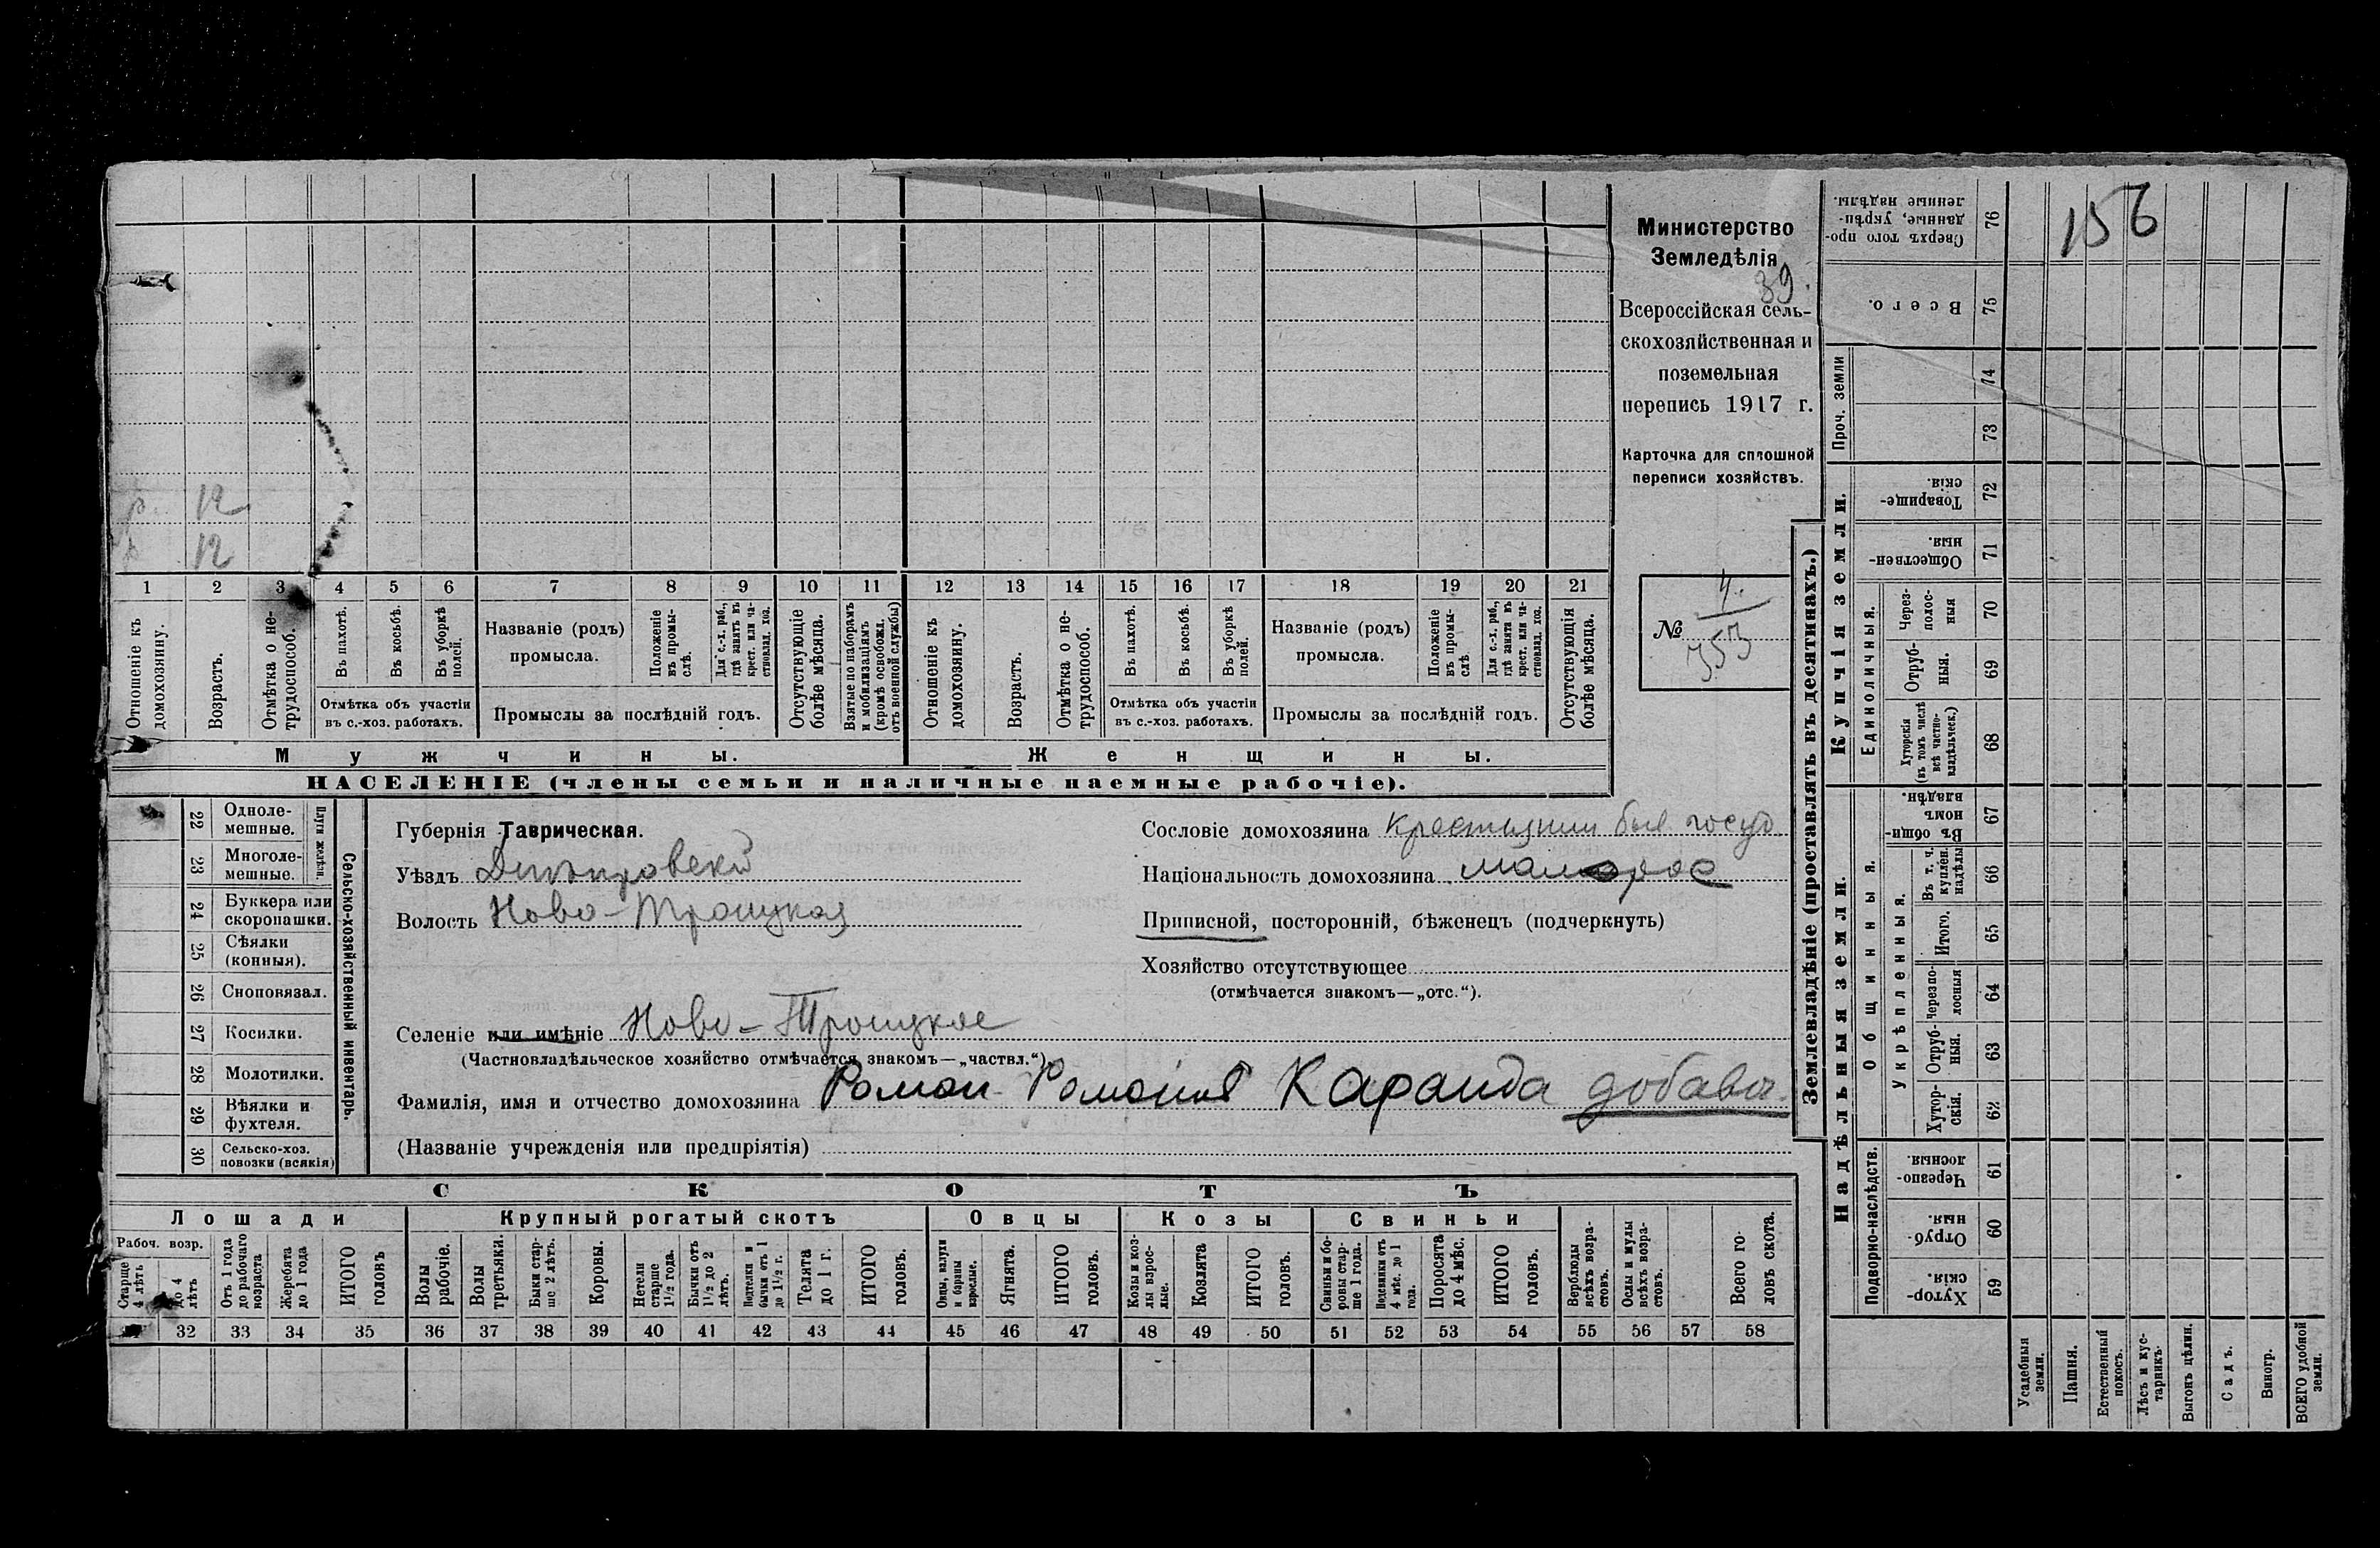 Министерство
Земледѣлія
39.
Всероссійская сель-
скохозяйственная и
поземельная
перепись 1917 г.
Карточка для сплошной
переписи хозяйствъ.
№ 4.
353
р. 12
р 12
1 2 3 4 5 6 7 8 9 10 11 12 13 14 15 16 17 18 19 20 21
Отношеніе къ домохозяину.
Возрастъ.
Отмѣтка о не-трудоспособ.
Въ пахотѣ.
Въ косьбѣ.
Въ уборкѣ полей.
Отмѣтка объ участіи
въ с.-хоз. работахъ.
Названіе (родъ)
промысла.
Положеніе въ промы-слѣ.
Для с.-х. раб., гдѣ занятъ въ крест. или ча-стновлад. хоз.
Промыслы за послѣдній годъ.
Отсутствующіе болѣе мѣсяца.
Взятые по наборамъ и мобилизаціямъ (кромѣ освобожд. отъ военной службы)
Отношеніе къ домохозяину.
Возрастъ.
Отмѣтка о не-трудоспособ.
Въ пахотѣ.
Въ косьбѣ.
Въ уборкѣ полей.
Отмѣтка объ участіи
въ с.-хоз. работахъ.
Названіе (родъ)
промысла.
Положеніе въ промы-слѣ
Для с.-х. раб., гдѣ занята въ крест. или ча-стновлад. хоз.
Промыслы за послѣдній годъ.
Отсутствующія болѣе мѣсяца.
Мужчины.
Женщины.
НАСЕЛЕНІЕ (члены семьи и наличные наемные рабочіе).
22 Одноле-мешные.
23 Многоле-мешные.
Плуги желѣзн.
24 Буккера или скоропашки.
25 Сѣялки (конныя).
26 Сноповязал.
27 Косилки.
28 Молотилки.
29 Вѣялки и фухтеля.
30 Сельско-хоз. повозки (всякія)
Сельско-хозяйственный инвентарь.
Губернія Таврическая.
Уѣздъ Днѣпровскій
Волость Ново-Троицкая
Сословіе домохозяина крестьянин быв госуд.
Національность домохозяина малорос
Приписной, посторонній, бѣженецъ (подчеркнуть)
Хозяйство отсутствующее
(отмѣчается знакомъ—„отс.“).
Селеніе или имѣніе Ново-Троицкое
(Частновладѣльческое хозяйство отмѣчается знакомъ—„частвл.“)
Фамилія, имя и отчество домохозяина Роман Романов Каранда добавоч.
(Названіе учрежденія или предпріятія)
СКОТЪ
Лошади
Крупный рогатый скотъ
Овцы
Козы
Свиньи
Рабоч. возр.
Старше 4 лѣтъ
до 4 лѣтъ
Отъ 1 года до рабочаго возраста
Жеребята до 1 года
ИТОГО головъ
Волы рабочіе.
Волы третьяки.
Быки стар-ше 2 лѣтъ.
Коровы.
Нетели старше 1½ года.
Бычки отъ 1½ до 2 лѣтъ.
Подтелки и бычки отъ 1 до 1½ г.
Телята до 1 г.
ИТОГО головъ.
Овцы, валухи и бараны взрослые.
Ягнята.
ИТОГО головъ.
Козы и коз-лы взрос-лые.
Козлята
ИТОГО головъ.
Свиньи и бо-ровы стар-ше 1 года.
Подсвинки отъ 4 мѣс. до 1 года.
Поросята до 4 мѣс.
ИТОГО головъ.
Верблюды всѣхъ возра-стовъ.
Ослы и мулы всѣхъ возра-стовъ.
Всего го-ловъ скота.
32 33 34 35 36 37 38 39 40 41 42 43 44 45 46 47 48 49 50 51 52 53 54 55 56 57 58
Землевладѣніе (проставлять въ десятинахъ.)
Купчія земли.
Надѣльныя земли.
Сверхъ того про-данные, укрѣп-ленные надѣлы. 76
156
Всего. 75
Проч. земли
74
73
Товарище-скія. 72
Обществен-ныя. 71
Единоличныя.
Черезполос-ныя 70
Отруб-ныя. 69
Хуторскія (въ томъ числѣ всѣ частно-владѣльческ.) 68
Общинныя.
Въ общи-номъ владѣн. 67
Укрѣпленныя.
Въ т. ч. куплен. надѣлы 66
Итого. 65
Черезпо-лосныя 64
Отруб-ныя. 63
Хутор-скія. 62
Подворно-наслѣдств.
Черезпо-лосныя. 61
Отруб-ныя. 60
Хутор-скія. 59
Усадебныя земли.
Пашня.
Естественный покосъ.
Лѣсъ и кус-тарникъ.
Выгонъ цѣлин.
Садъ.
Виногр.
ВСЕГО удобной земли.